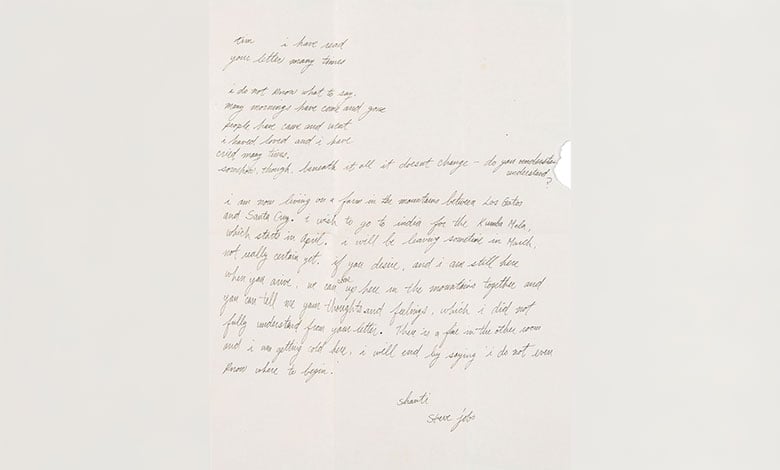 tim i have read
your letter many times
i do not know what to say.
many mornings have come and gone
people have came and went
i haved loved and i have
cried many times.
somehow, though, beneath it all it doesn't change – do you understan
understand?
i am now living on a farm in the mountains between Los Gatos
and Santa Cruz. i wish to go to india for the Kumba Mela,
which starts in April. i will be leaving sometime in March,
not really certain yet. if you desire, and i am still here
when you arive, we can up here in the mountains together and
you can tell me your thoughts and feelings, which i did not
fully understand from your letter. There is a fire in the other room
and i am getting cold here. i will end by saying 'i do not even
know where to begin.'
shanti
steve jobs